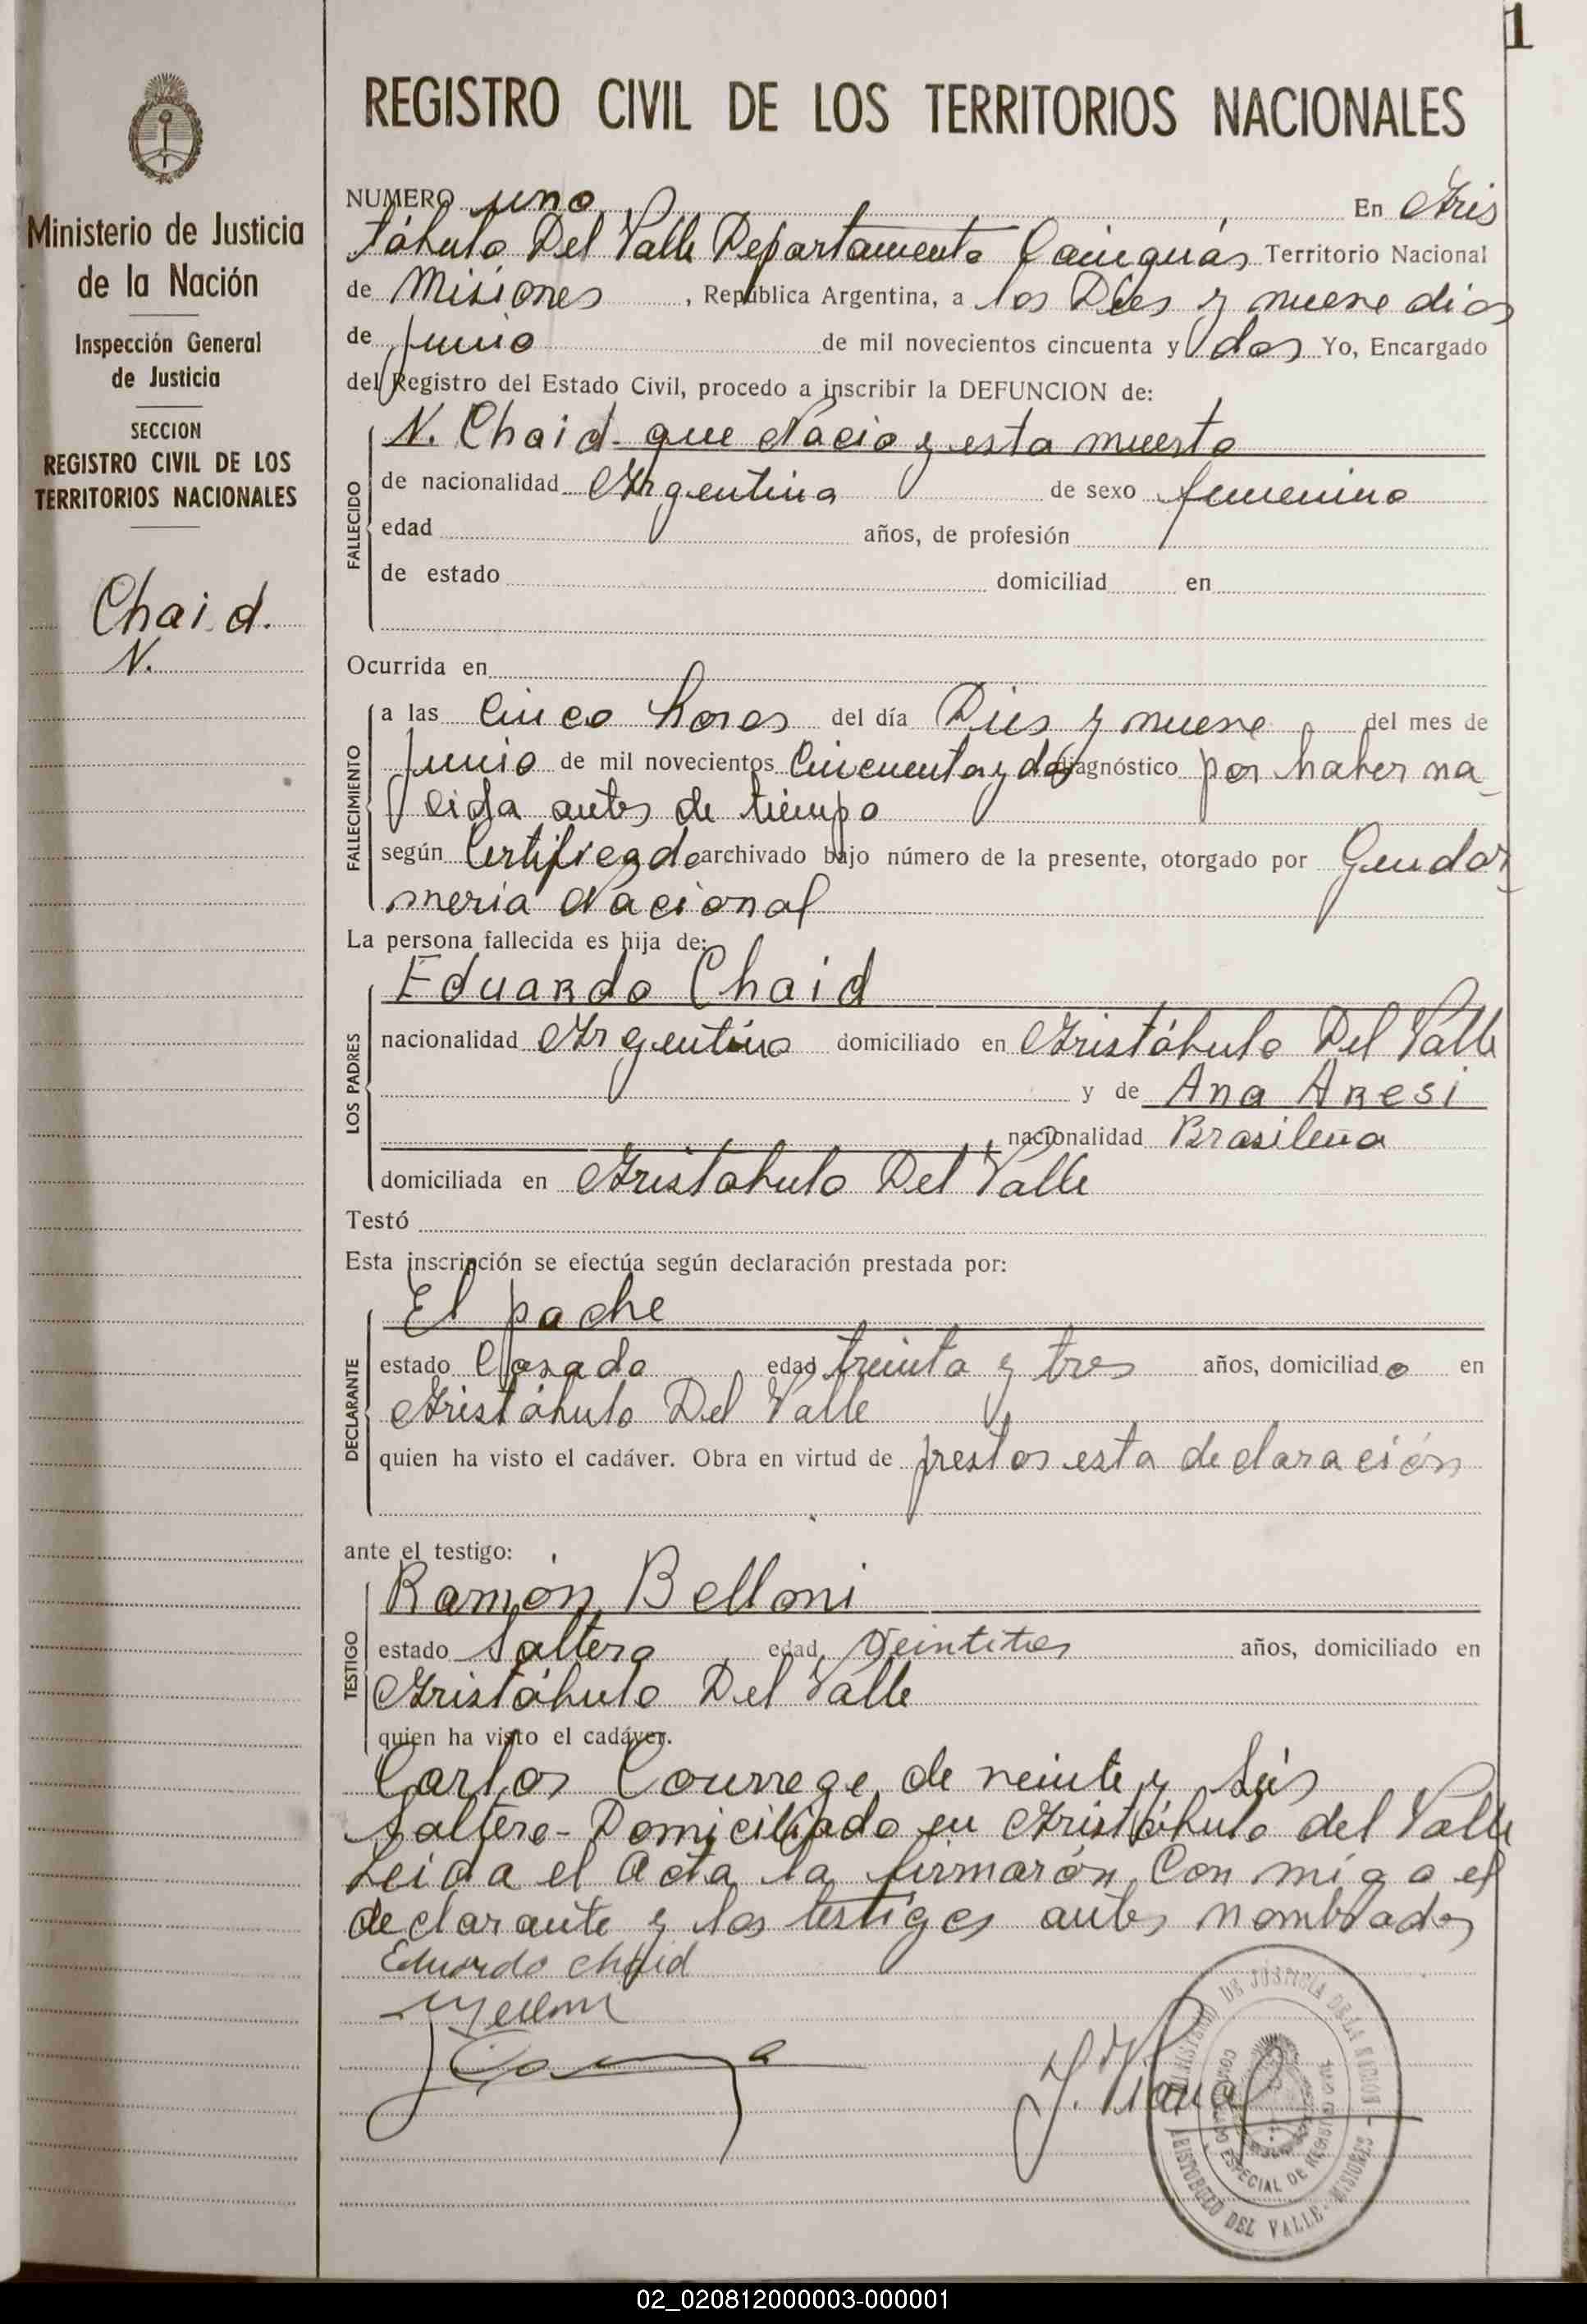 1
Ministerio de Justicia
de la Nación
Inspección General
de Justicia
SECCION
REGISTRO CIVIL DE LOS
TERRITORIOS NACIONALES
Chaid.
N.
REGISTRO CIVIL DE LOS TERRITORIOS NACIONALES
NUMERO uno En Aris
tóbulo Del Valle Departamento Cainguás Territorio Nacional
de Misiones, República Argentina, a los Dies y nueve dias
de Junio de mil novecientos cincuenta y dos Yo, Encargado
del Registro del Estado Civil, procedo a inscribir la DEFUNCION de:
N. Chaid - que Nacio y esta muerto
FALLECIDO
de nacionalidad Argentina de sexo femenino
edad años, de profesión
de estado domiciliad en
Ocurrida en
FALLECIMIENTO
a las Cinco horas del día Dies y nueve del mes de
Junio de mil novecientos Cincuenta y dos diagnóstico por haber na
cida antes de tiempo
según Certificado archivado bajo número de la presente, otorgado por Gendar
meria Nacional
La persona fallecida es hija de:
LOS PADRES
Eduardo Chaid
nacionalidad Argentino domiciliado en Aristóbulo Del Valle
y de Ana Aresi
, nacionalidad Brasileña
domiciliada en Aristobulo Del Valle
Testó
Esta inscripción se efectúa según declaración prestada por:
DECLARANTE
El padre
estado Casado edad treinta y tres años, domiciliado en
Aristóbulo Del Valle
quien ha visto el cadáver. Obra en virtud de prestar esta declaración
ante el testigo:
TESTIGO
Ramón Belloni
estado Soltero edad Veintitres años, domiciliado en
Aristóbulo Del Valle
quien ha visto el cadáver.
Carlos Courrege de veinte y Seis
Soltero - Domiciliado en Aristóbulo del Valle
Leida el Acta la firmarón Con migo el
declarante y los testigos antes nombrados
Eduardo Chaid
MINISTERIO DE JUSTICIA DE LA NACION
ARISTOBULO DEL VALLE - MISIONES
02_020812000003-000001